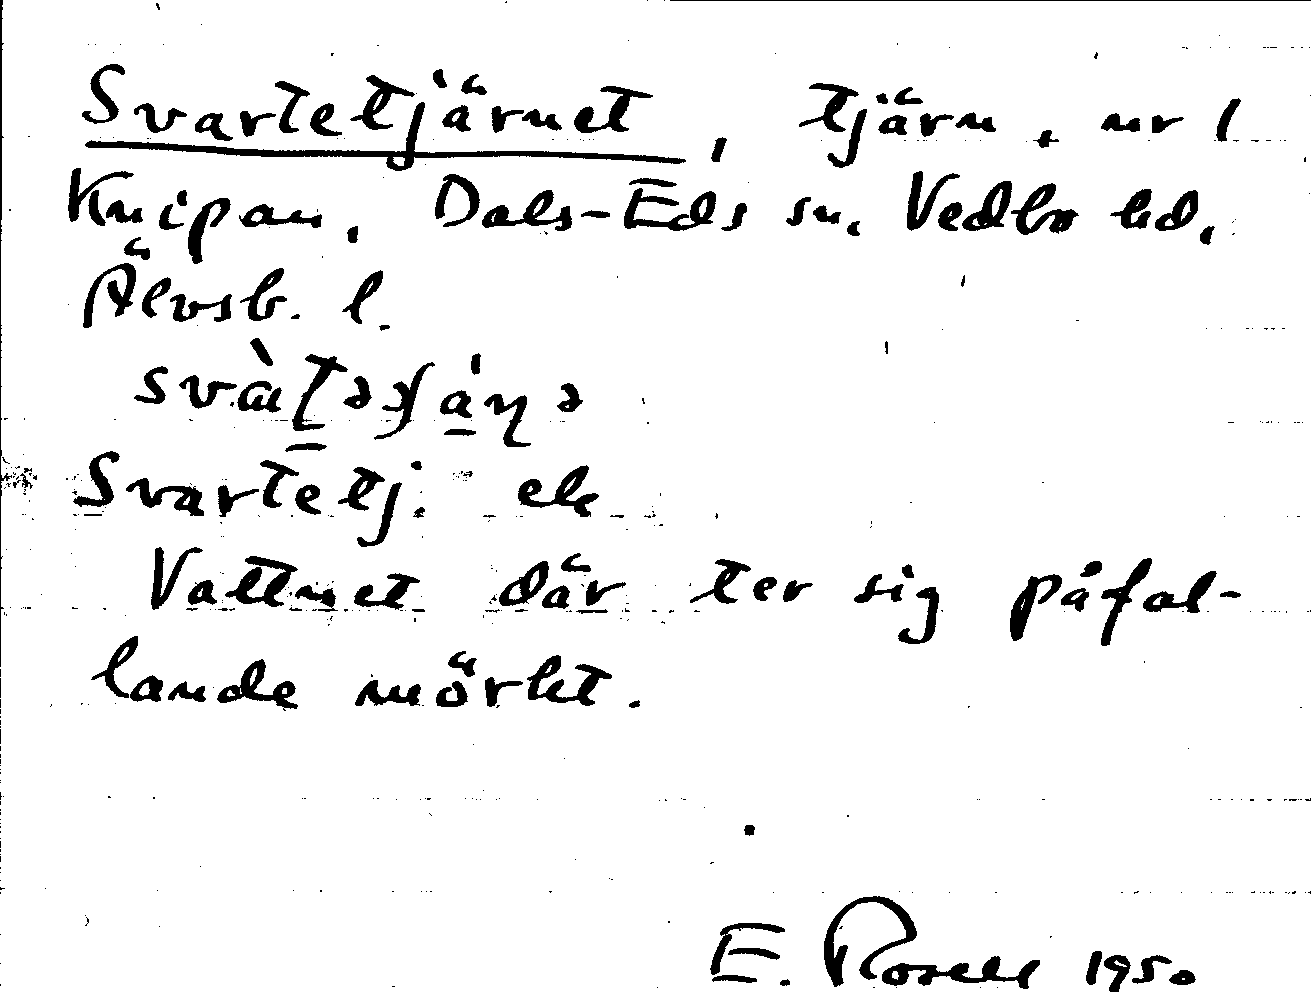 Svartetjärnet, tjärn, nr 1
Knipan, Dals-Eds sn, Vedbo hd,
Älvsb. l.
Svartetj. ek
Vattnet där ter sig påfal-
lande mörkt.
E. Rosell 1950